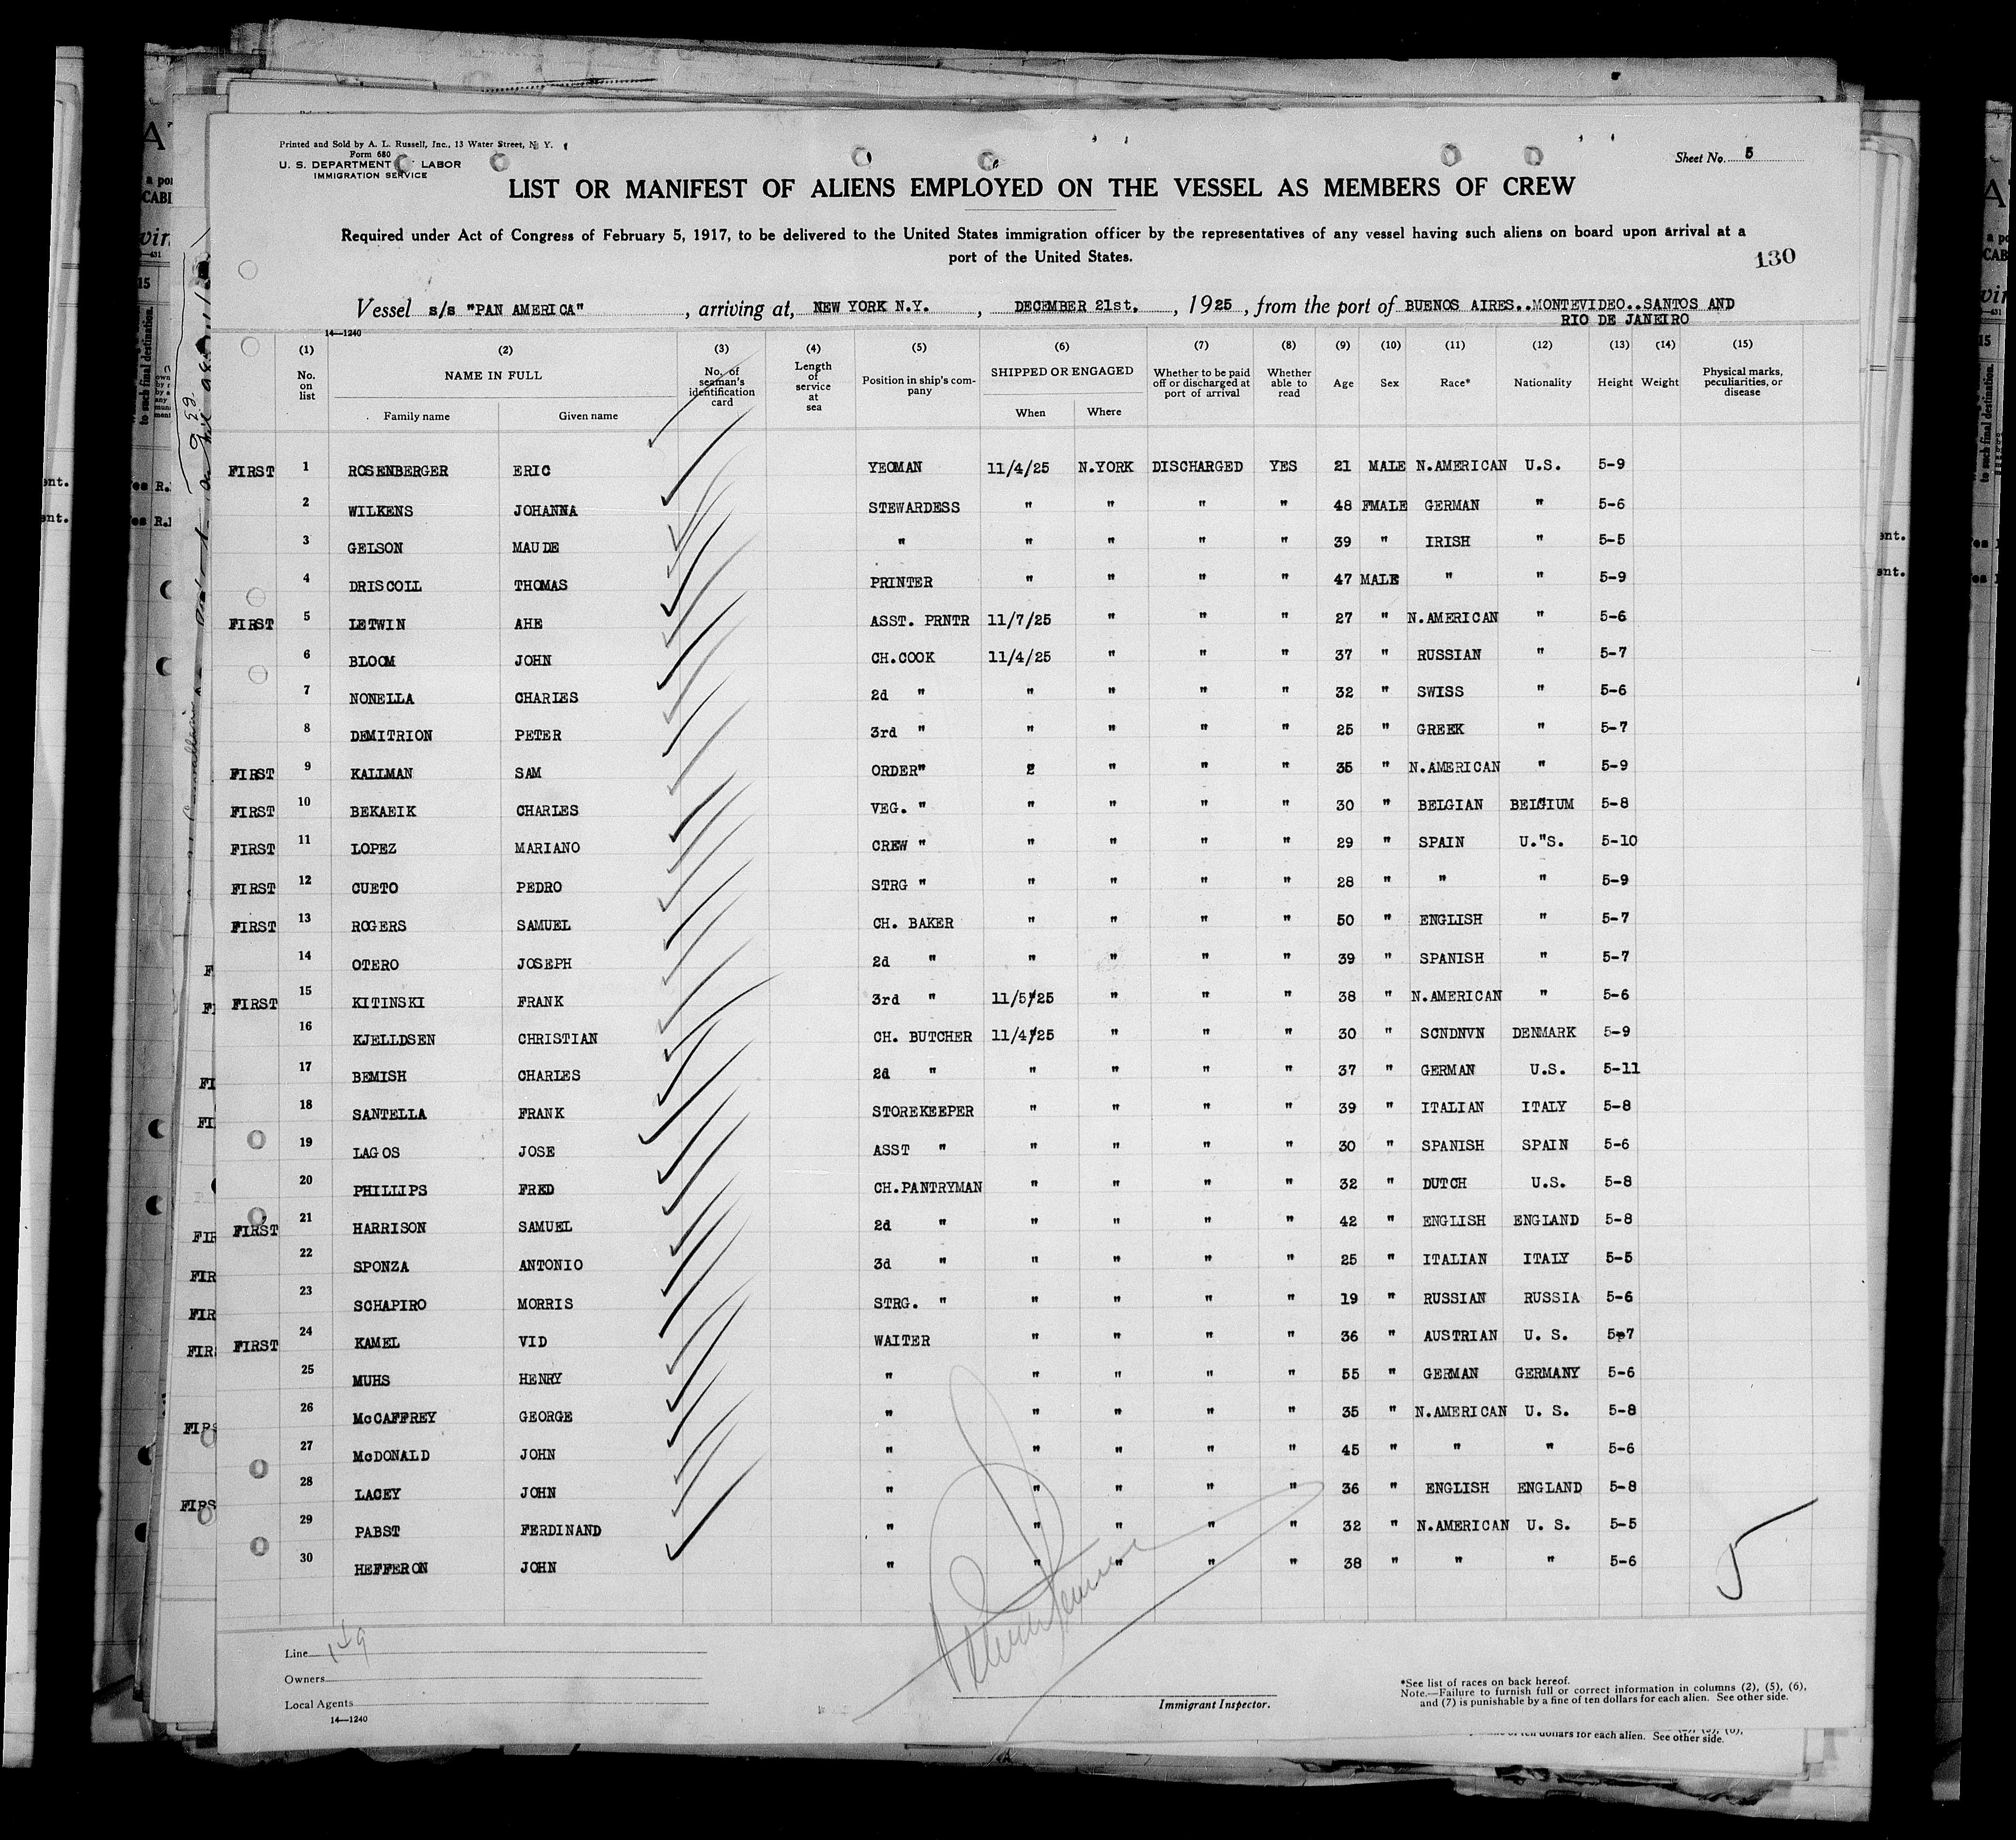 Printed and Sold by A. L. Russell, Inc., 13 Water Street, N. Y.
Form 680
U. S. DEPARTMENT LABOR
IMMIGRATION SERVICE
Sheet No. 5
LIST OR MANIFEST OF ALIENS EMPLOYED ON THE VESSEL AS MEMBERS OF CREW
Required under Act of Congress of February 5, 1917, to be delivered to the United States immigration officer by the representatives of any vessel having such aliens on board upon arrival at a
port of the United States.
130
Vessel s/s "PAN AMERICA", arriving at, NEW YORK N.Y., DECEMBER 21st., 1925, from the port of BUENOS AIRES..MONTEVIDEO..SANTOS AND
RIO DE JANEIRO
14—1240
(1) (2) (3) (4) (5) (6) (7) (8) (9) (10) (11) (12) (13) (14) (15)
No. on list NAME IN FULL Family name Given name No. of seaman's identification card Length of service at sea Position in ship's company SHIPPED OR ENGAGED When Where Whether to be paid off or discharged at port of arrival Whether able to read Age Sex Race* Nationality Height Weight Physical marks, peculiarities, or disease
FIRST 1 ROSENBERGER ERIC YEOMAN 11/4/25 N.YORK DISCHARGED YES 21 MALE N.AMERICAN U.S. 5-9
2 WILKENS JOHANNA STEWARDESS " " " " 48 FMALE GERMAN " 5-6
3 GELSON MAUDE " " " " " 39 " IRISH " 5-5
4 DRISCOLL THOMAS PRINTER " " " " 47 MALE " " 5-9
FIRST 5 LETWIN AHE ASST. PRNTR 11/7/25 " " " 27 " N.AMERICAN " 5-6
6 BLOOM JOHN CH.COOK 11/4/25 " " " 37 " RUSSIAN " 5-7
7 NONELLA CHARLES 2d " " " " " 32 " SWISS " 5-6
8 DEMITRION PETER 3rd " " " " " 25 " GREEK " 5-7
FIRST 9 KALLMAN SAM ORDER" 2 " " " 35 " N.AMERICAN " 5-9
FIRST 10 BEKAEIK CHARLES VEG. " " " " " 30 " BELGIAN BELGIUM 5-8
FIRST 11 LOPEZ MARIANO CREW " " " " " 29 " SPAIN U."S. 5-10
FIRST 12 CUETO PEDRO STRG " " " " " 28 " " " 5-9
FIRST 13 ROGERS SAMUEL CH. BAKER " " " " 50 " ENGLISH " 5-7
14 OTERO JOSEPH 2d " " " " " 39 " SPANISH " 5-7
FIRST 15 KITINSKI FRANK 3rd " 11/5/25 " " " 38 " N.AMERICAN " 5-6
16 KJELLDSEN CHRISTIAN CH. BUTCHER 11/4/25 " " " 30 " SCNDNVN DENMARK 5-9
17 BEMISH CHARLES 2d " " " " " 37 " GERMAN U.S. 5-11
18 SANTELLA FRANK STOREKEEPER " " " " 39 " ITALIAN ITALY 5-8
19 LAGOS JOSE ASST " " " " " 30 " SPANISH SPAIN 5-6
20 PHILLIPS FRED CH.PANTRYMAN " " " " 32 " DUTCH U.S. 5-8
FIRST 21 HARRISON SAMUEL 2d " " " " " 42 " ENGLISH ENGLAND 5-8
22 SPONZA ANTONIO 3d " " " " " 25 " ITALIAN ITALY 5-5
23 SCHAPIRO MORRIS STRG. " " " " " 19 " RUSSIAN RUSSIA 5-6
FIRST 24 KAMEL VID WAITER " " " " 36 " AUSTRIAN U. S. 5-7
25 MUHS HENRY " " " " " 55 " GERMAN GERMANY 5-6
26 McCAFFREY GEORGE " " " " " 35 " N.AMERICAN U. S. 5-8
27 McDONALD JOHN " " " " " 45 " " " 5-6
28 LACEY JOHN " " " " " 36 " ENGLISH ENGLAND 5-8
29 PABST FERDINAND " " " " " 32 " N.AMERICAN U. S. 5-5
30 HEFFERON JOHN " " " " " 38 " " " 5-6
5
Line
Owners
Local Agents
14—1240
Immigrant Inspector.
*See list of races on back hereof.
Note.—Failure to furnish full or correct information in columns (2), (5), (6),
and (7) is punishable by a fine of ten dollars for each alien. See other side.
ten dollars for each alien. See other side.